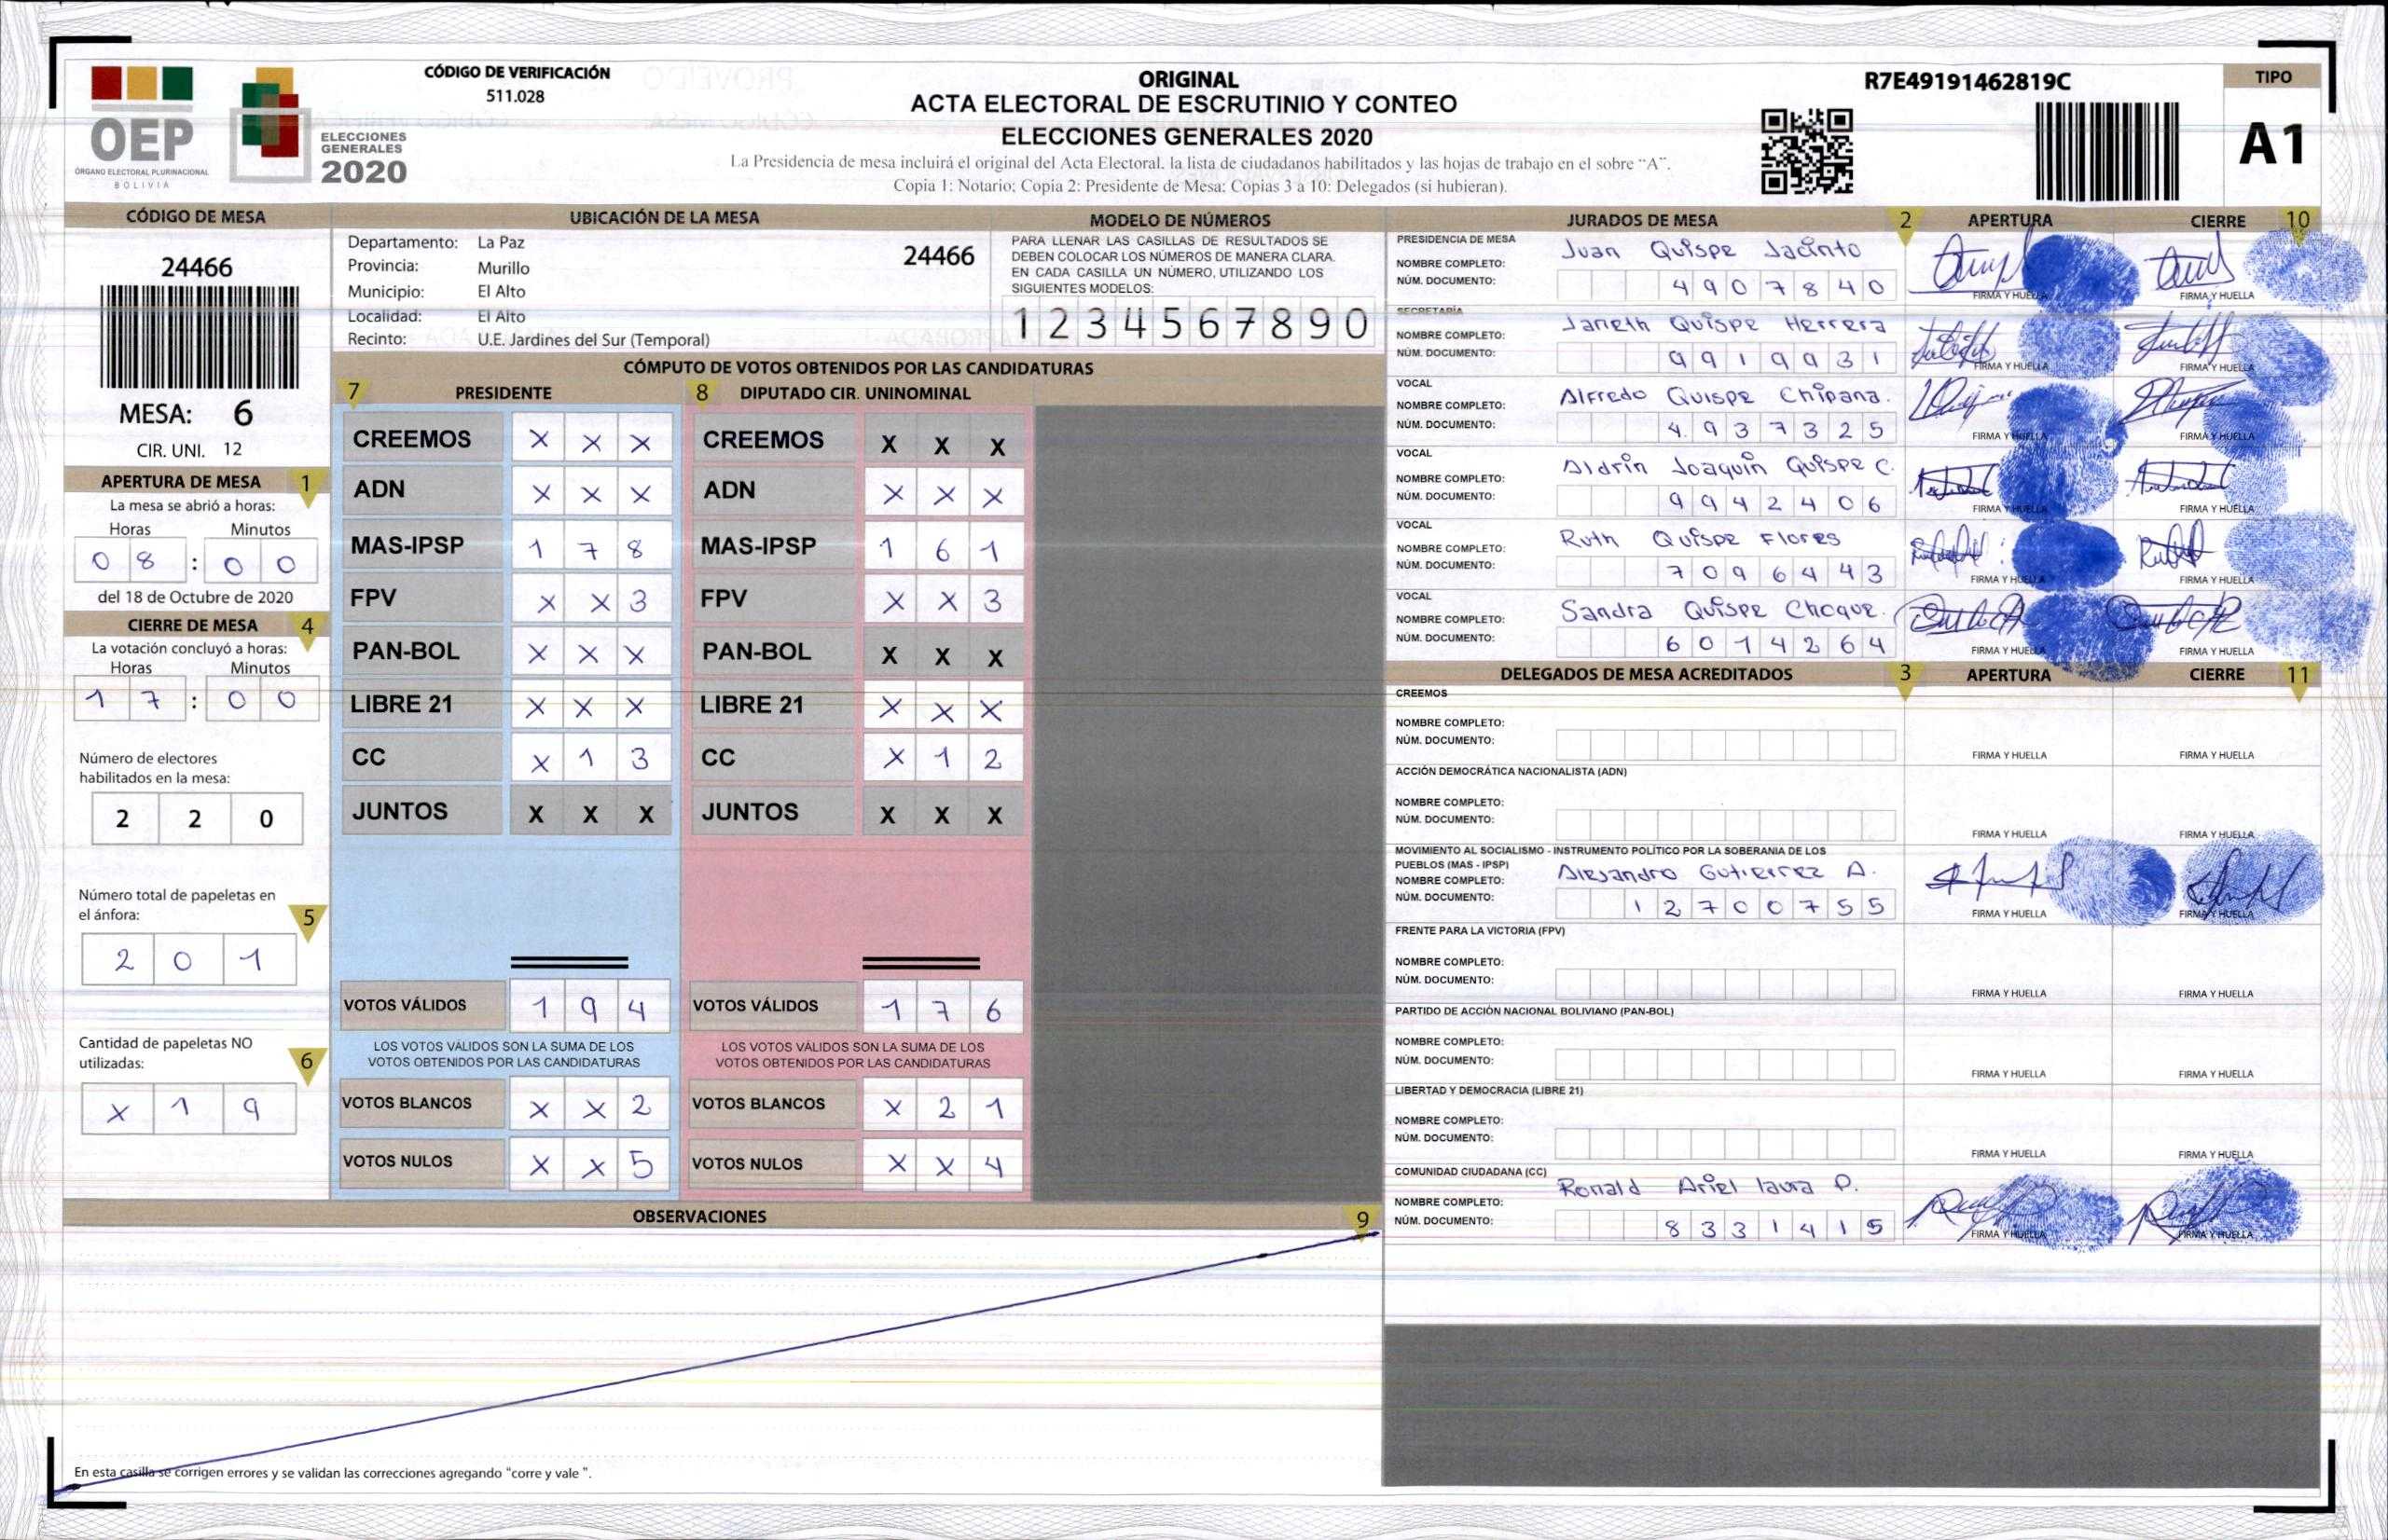 OEP
ÓRGANO ELECTORAL PLURINACIONAL
BOLIVIA
ELECCIONES
GENERALES
2020
CÓDIGO DE VERIFICACIÓN
511.028
ORIGINAL
ACTA ELECTORAL DE ESCRUTINIO Y CONTEO
ELECCIONES GENERALES 2020
La Presidencia de mesa incluirá el original del Acta Electoral. la lista de ciudadanos habilitados y las hojas de trabajo en el sobre “A”.
Copia 1: Notario; Copia 2: Presidente de Mesa; Copias 3 a 10: Delegados (si hubieran).
R7E49191462819C
TIPO
A1
CÓDIGO DE MESA
24466
MESA: 6
CIR. UNI. 12
APERTURA DE MESA 1
La mesa se abrió a horas:
Horas Minutos
0 8 : 0 0
del 18 de Octubre de 2020
CIERRE DE MESA 4
La votación concluyó a horas:
Horas Minutos
1 7 : 0 0
Número de electores
habilitados en la mesa:
2 2 0
Número total de papeletas en
el ánfora: 5
2 0 1
Cantidad de papeletas NO
utilizadas: 6
X 1 9
UBICACIÓN DE LA MESA
Departamento: La Paz 24466
Provincia: Murillo
Municipio: El Alto
Localidad: El Alto
Recinto: U.E. Jardines del Sur (Temporal)
MODELO DE NÚMEROS
PARA LLENAR LAS CASILLAS DE RESULTADOS SE
DEBEN COLOCAR LOS NÚMEROS DE MANERA CLARA.
EN CADA CASILLA UN NÚMERO, UTILIZANDO LOS
SIGUIENTES MODELOS:
1 2 3 4 5 6 7 8 9 0
CÓMPUTO DE VOTOS OBTENIDOS POR LAS CANDIDATURAS
7 PRESIDENTE 8 DIPUTADO CIR. UNINOMINAL
CREEMOS X X X CREEMOS X X X
ADN X X X ADN X X X
MAS-IPSP 1 7 8 MAS-IPSP 1 6 1
FPV X X 3 FPV X X 3
PAN-BOL X X X PAN-BOL X X X
LIBRE 21 X X X LIBRE 21 X X X
CC X 1 3 CC X 1 2
JUNTOS X X X JUNTOS X X X
VOTOS VÁLIDOS 1 9 4 VOTOS VÁLIDOS 1 7 6
LOS VOTOS VÁLIDOS SON LA SUMA DE LOS LOS VOTOS VÁLIDOS SON LA SUMA DE LOS
VOTOS OBTENIDOS POR LAS CANDIDATURAS VOTOS OBTENIDOS POR LAS CANDIDATURAS
VOTOS BLANCOS X X 2 VOTOS BLANCOS X 2 1
VOTOS NULOS X X 5 VOTOS NULOS X X 4
OBSERVACIONES 9
En esta casilla se corrigen errores y se validan las correcciones agregando “corre y vale ”.
JURADOS DE MESA 2 APERTURA CIERRE 10
PRESIDENCIA DE MESA
NOMBRE COMPLETO: Juan Quispe Jacinto
NÚM. DOCUMENTO: 4 9 0 7 8 4 0 FIRMA Y HUELLA FIRMA Y HUELLA
SECRETARÍA
NOMBRE COMPLETO: Janeth Quispe Herrera
NÚM. DOCUMENTO: 9 9 1 9 9 3 1 FIRMA Y HUELLA FIRMA Y HUELLA
VOCAL
NOMBRE COMPLETO: Alfredo Quispe Chipana.
NÚM. DOCUMENTO: 4. 9 3 7 3 2 5 FIRMA Y HUELLA FIRMA Y HUELLA
VOCAL
NOMBRE COMPLETO: Aldrin Joaquin Quispe C.
NÚM. DOCUMENTO: 9 9 4 2 4 0 6 FIRMA Y HUELLA FIRMA Y HUELLA
VOCAL
NOMBRE COMPLETO: Ruth Quispe Flores
NÚM. DOCUMENTO: 7 0 9 6 4 4 3 FIRMA Y HUELLA FIRMA Y HUELLA
VOCAL
NOMBRE COMPLETO: Sandra Quispe Choque.
NÚM. DOCUMENTO: 6 0 7 4 2 6 4 FIRMA Y HUELLA FIRMA Y HUELLA
DELEGADOS DE MESA ACREDITADOS 3 APERTURA CIERRE 11
CREEMOS
NOMBRE COMPLETO:
NÚM. DOCUMENTO: FIRMA Y HUELLA FIRMA Y HUELLA
ACCIÓN DEMOCRÁTICA NACIONALISTA (ADN)
NOMBRE COMPLETO:
NÚM. DOCUMENTO: FIRMA Y HUELLA FIRMA Y HUELLA
MOVIMIENTO AL SOCIALISMO - INSTRUMENTO POLÍTICO POR LA SOBERANIA DE LOS
PUEBLOS (MAS - IPSP)
NOMBRE COMPLETO: Alejandro Gutierrez A.
NÚM. DOCUMENTO: 1 2 7 0 0 7 5 5 FIRMA Y HUELLA FIRMA Y HUELLA
FRENTE PARA LA VICTORIA (FPV)
NOMBRE COMPLETO:
NÚM. DOCUMENTO: FIRMA Y HUELLA FIRMA Y HUELLA
PARTIDO DE ACCIÓN NACIONAL BOLIVIANO (PAN-BOL)
NOMBRE COMPLETO:
NÚM. DOCUMENTO: FIRMA Y HUELLA FIRMA Y HUELLA
LIBERTAD Y DEMOCRACIA (LIBRE 21)
NOMBRE COMPLETO:
NÚM. DOCUMENTO: FIRMA Y HUELLA FIRMA Y HUELLA
COMUNIDAD CIUDADANA (CC)
NOMBRE COMPLETO: Ronald Ariel laura P.
NÚM. DOCUMENTO: 8 3 3 1 4 1 5 FIRMA Y HUELLA FIRMA Y HUELLA